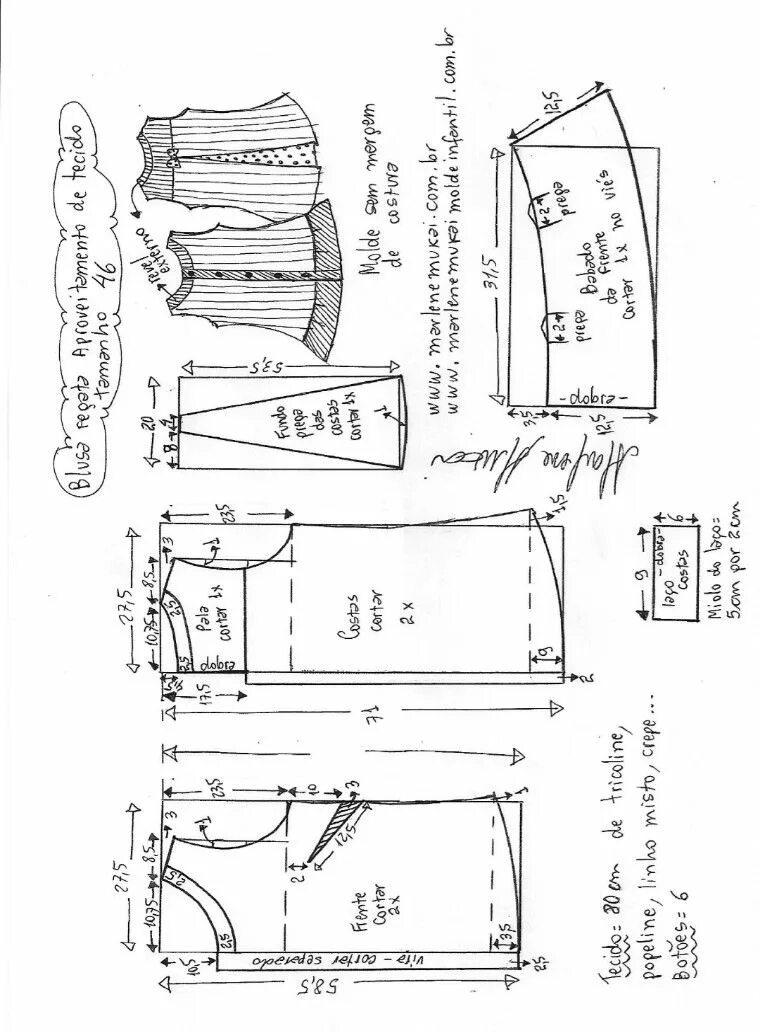 Blusa regata Aproveitamento de tecido
tamanho 46
revel
externo
Molde sem margem
de costura
www.marlenemukai.com.br
www.marlenemukaimoldeinfantil.com.br
Marlene Mukai
20
8
4
53,5
Fundo
prega
das
costas
cortar 1x
1
31,5
12,5
2
prega
2
prega
Babado
da frente
cortar 1x no viés
-dobra-
3,5
12,5
27,5
10,75
8,5
3
23,5
1
2,5
2,5
Pala
cortar 1x
dobra
4,5
17,5
Costas
cortar
2x
1,5
9
2
71
9
6
laço
-dobra-
costas
Miolo do laço=
5cm por 2cm
27,5
10,75
8,5
3
23,5
10
3
1
2,5
2,5
12,5
2
1
Frente
cortar
2x
3,5
10,5
vira - cortar separado
2,5
58,5
Tecido= 80cm de tricoline,
popeline, linho misto, crepe...
Botões= 6